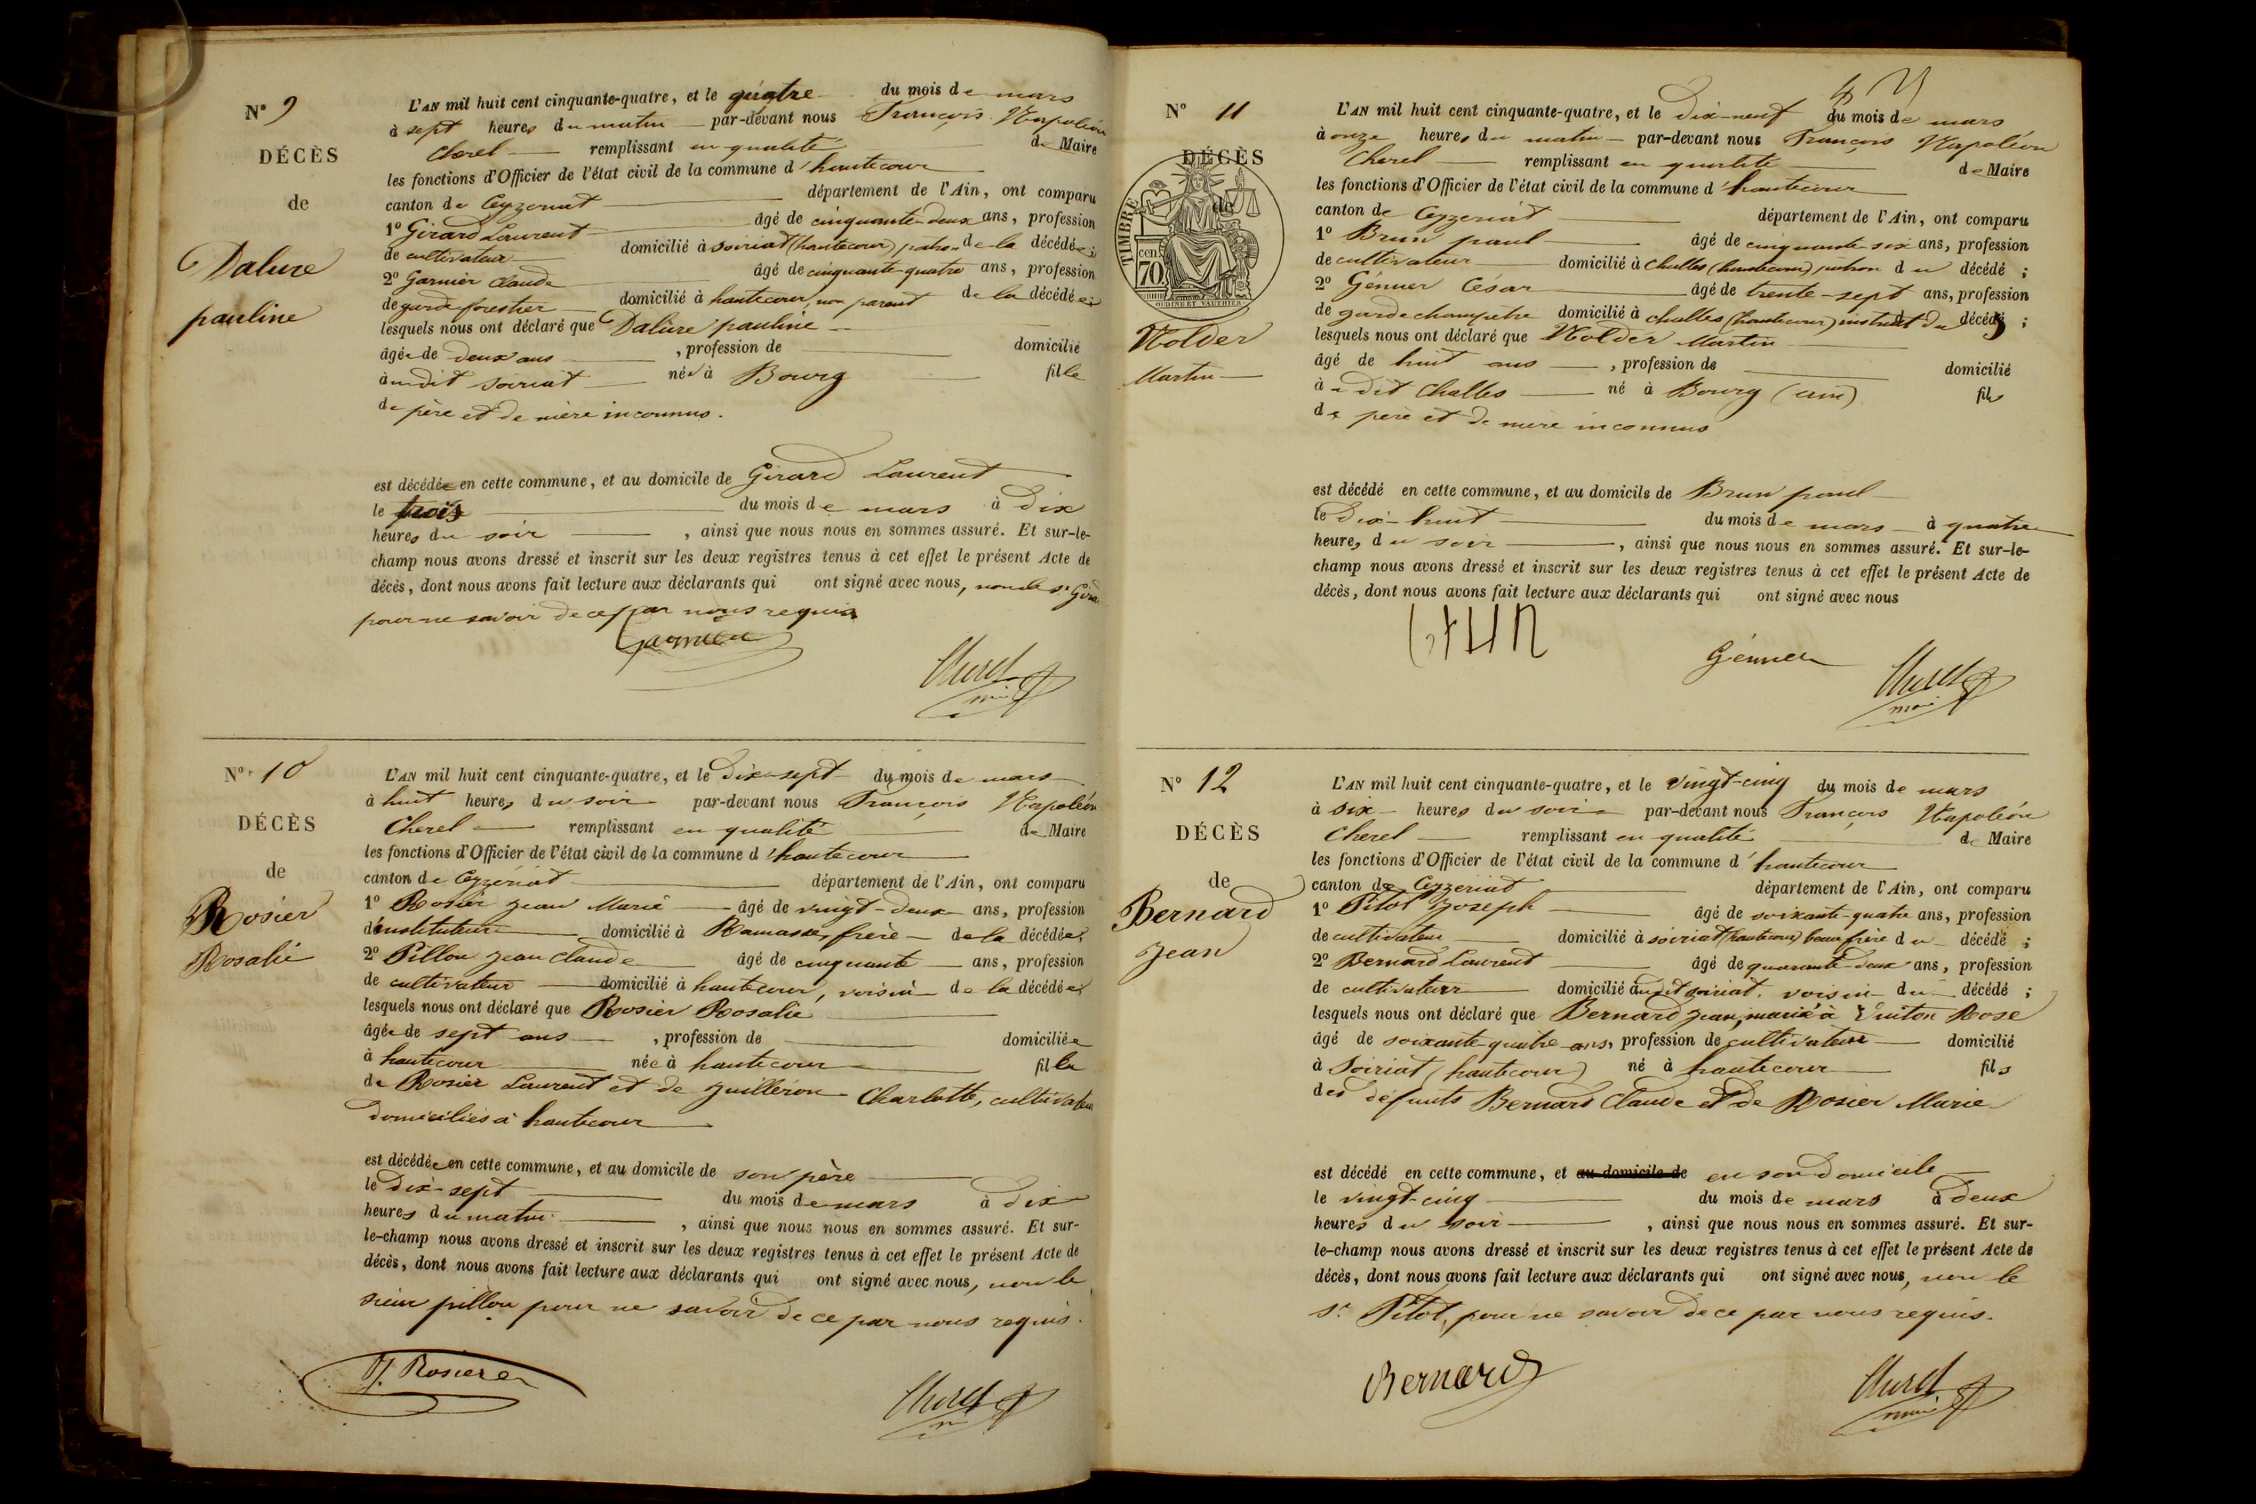 N° 9
DÉCÈS
de
Daluze
pauline
L'AN mil huit cent cinquante-quatre, et le quatre du mois de mars
à sept heures du matin par-devant nous François Napoléon
Cherel remplissant en qualité de Maire
les fonctions d'Officier de l'état civil de la commune d'hautecour
canton de Ceyzeriat département de l'Ain, ont comparu
1° Girard Laurent âgé de cinquante-deux ans, profession
de cultivateur domicilié à soiriat (hautecour) patron de la décédée;
2° Garnier Claude âgé de cinquante-quatre ans, profession
de garde forestier domicilié à hautecour, non parent de la décédée;
lesquels nous ont déclaré que pauline
âgée de deux ans , profession de domicilié
à udit soiriat née à Bourg fille
de père et de mère inconnus.
est décédée en cette commune, et au domicile de Girard Laurent
le trois du mois de mars à dix
heures du soir , ainsi que nous nous en sommes assuré. Et sur-le-
champ nous avons dressé et inscrit sur les deux registres tenus à cet effet le présent Acte de
décès, dont nous avons fait lecture aux déclarants qui ont signé avec nous, non le sr
pour ne savoir de ce par nous requis
Garnier
Cherel
N° 10
DÉCÈS
de
Rosier
Rosalie
L'AN mil huit cent cinquante-quatre, et le dix-sept du mois de mars
à huit heures du soir par-devant nous François Napoléon
Cherel remplissant en qualité de Maire
les fonctions d'Officier de l'état civil de la commune d'hautecour
canton de Ceyzériat département de l'Ain, ont comparu
1° Rosier jean Marie âgé de vingt-deux ans, profession
d'instituteur domicilié à Ramasse, frère de la décédée;
2° Pillon jean Claude âgé de cinquante ans, profession
de cultivateur domicilié à hautecour, voisin de la décédée;
lesquels nous ont déclaré que Rosier Rosalie
âgée de sept ans , profession de domiciliée
à hautecour née à hautecour fille
de Rosier Laurent et de Juilleron Charlotte, cultivateurs
domiciliés à hautecour
est décédée en cette commune, et au domicile de son père
le dix-sept du mois de mars à dix
heures du matin , ainsi que nous nous en sommes assuré. Et sur-
le-champ nous avons dressé et inscrit sur les deux registres tenus à cet effet le présent Acte de
décès, dont nous avons fait lecture aux déclarants qui ont signé avec nous, non le
sieur pillon pour ne savoir de ce par nous requis.
J. Rosier
Cherel
N° 11
DÉCÈS
de
TIMBRE
70 cen
Nolder
Martin
L'AN mil huit cent cinquante-quatre, et le dix-neuf du mois de mars
à onze heures du matin par-devant nous François Napoléon
Cherel remplissant en qualité de Maire
les fonctions d'Officier de l'état civil de la commune d'hautecour
canton de Ceyzeriat département de l'Ain, ont comparu
1° Brun paul âgé de cinquante-six ans, profession
de cultivateur domicilié à challes (hautecour) patron du décédé ;
2° Génner César âgé de trente-sept ans, profession
de garde champêtre domicilié à challes (hautecour) du décédé ;
lesquels nous ont déclaré que Nolder Martin
âgé de huit ans , profession de domicilié
à u dit Challes né à Bourg (ain) fils
de père et de mère inconnus
est décédé en cette commune, et au domicile de Brun paul
le dix-huit du mois de mars à quatre
heures du soir , ainsi que nous nous en sommes assuré. Et sur-le-
champ nous avons dressé et inscrit sur les deux registres tenus à cet effet le présent Acte de
décès, dont nous avons fait lecture aux déclarants qui ont signé avec nous
brun
Génner
Cherel
N° 12
DÉCÈS
de
Bernard
Jean
L'AN mil huit cent cinquante-quatre, et le vingt-cinq du mois de mars
à six heures du soir par-devant nous François Napoléon
Cherel remplissant en qualité de Maire
les fonctions d'Officier de l'état civil de la commune d'hautecour
canton de Ceyzeriat département de l'Ain, ont comparu
1° Pitot Joseph âgé de soixante-quatre ans, profession
de cultivateur domicilié à soiriat (hautecour) beau frère du décédé ;
2° Bernard Laurent âgé de quarante-deux ans, profession
de cultivateur domicilié audit soiriat, voisin du décédé ;
lesquels nous ont déclaré que Bernard jean, marié à Rose
âgé de soixante-quatre ans, profession de cultivateur domicilié
à Soiriat (hautecour) né à hautecour fils
des défunts Bernard Claude et de Rosier Marie
est décédé en cette commune, et au domicile de en son domicile
le vingt-cinq du mois de mars à deux
heures du soir , ainsi que nous nous en sommes assuré. Et sur-
le-champ nous avons dressé et inscrit sur les deux registres tenus à cet effet le présent Acte de
décès, dont nous avons fait lecture aux déclarants qui ont signé avec nous, non le
sr Pitot, pour ne savoir de ce par nous requis.
Bernard
Cherel